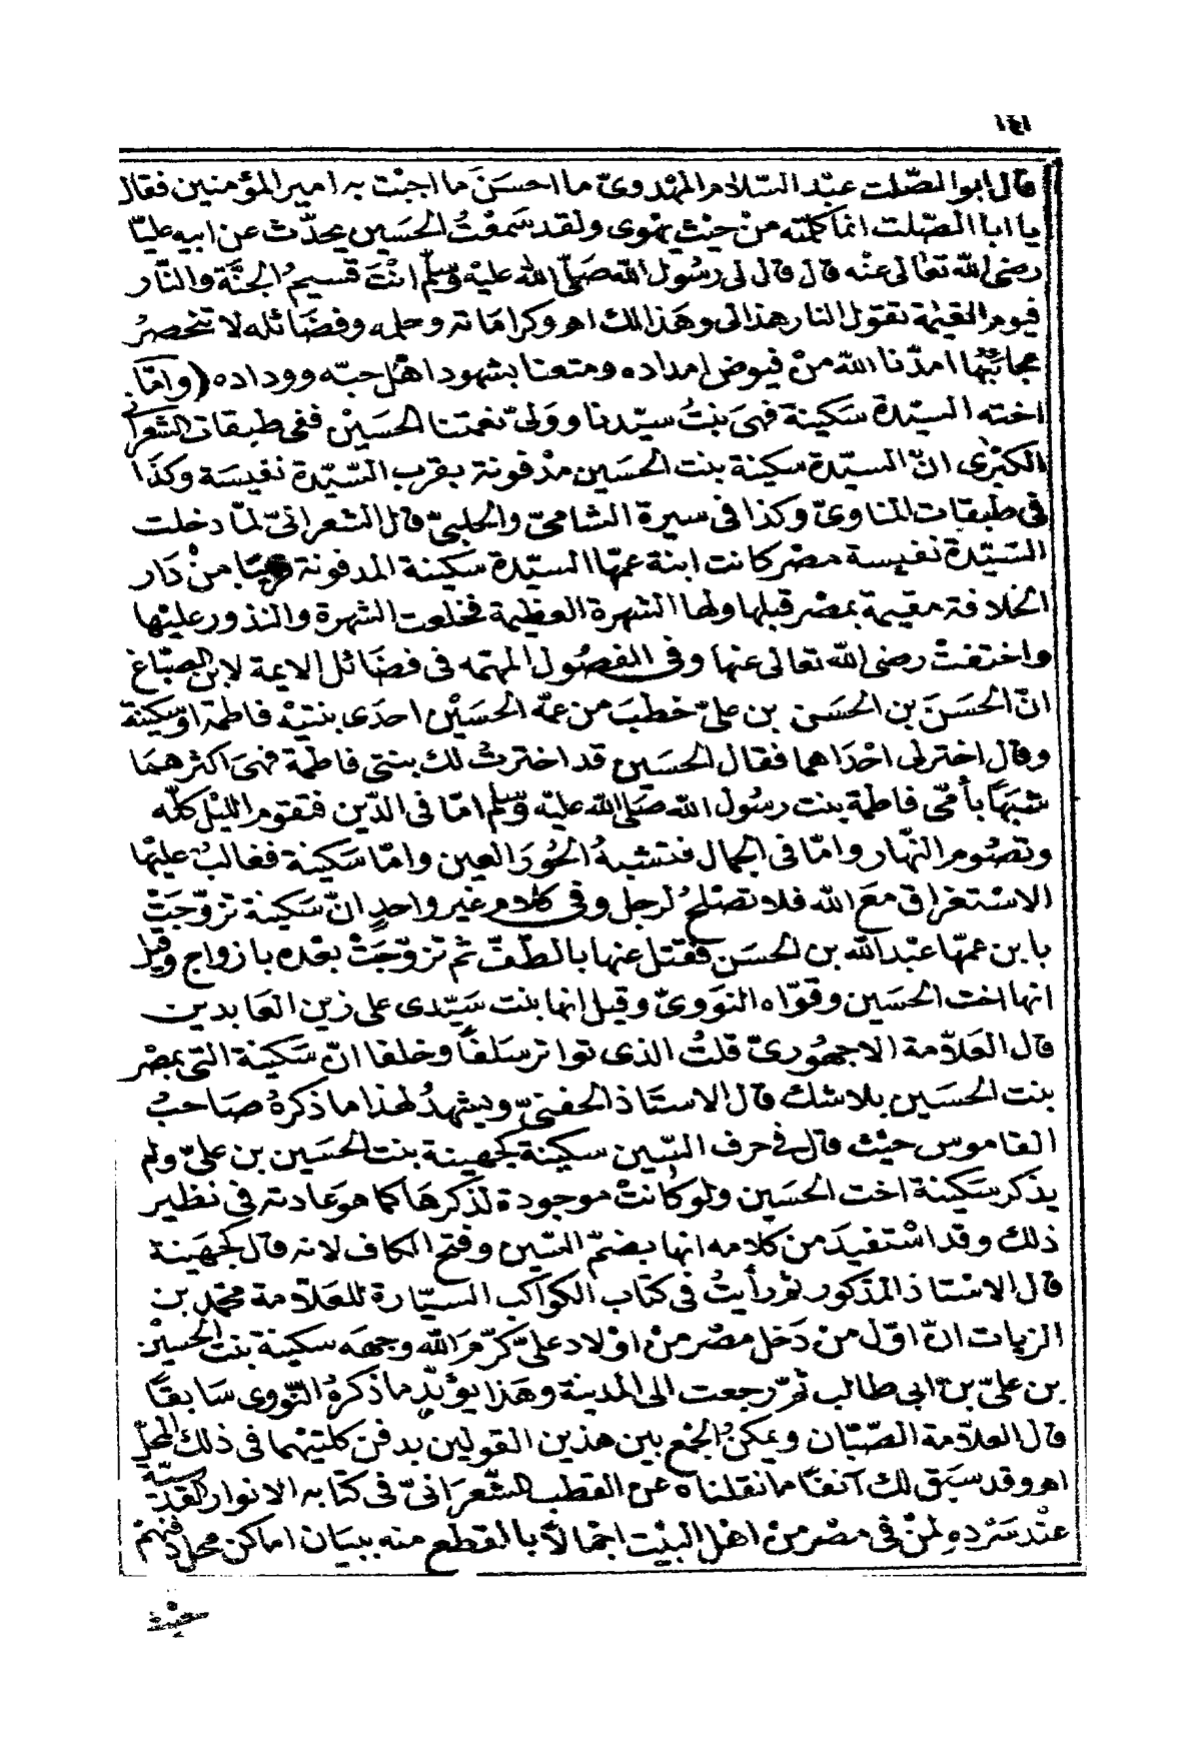 ١٤١
قال ابو الصّلت عبد السّلام المهْدوىّ ما احسَنَ ما اجبْت به امير المؤمنين فقال
يا ابا الصّلت انما كلمته منْ حيْث يهْوى ولقد سَمعْتُ الحسَين يحدّث عن ابيه عليّا
رضى الله تعالى عنْه قال قال لى رسُول الله صَلّى الله عليْه وسَلّم انْتَ قسيمُ الجنّة والنّار
فيوم القيٰمة تقول النار هذا لى وهَذا لك اهـ وكراماته وحلمه وفضَائله لا تنحصرُ
عجائبُها امدّنا الله منْ فيوض امداده ومتعنا بشهود اهْل حبّه ووداده (وامّا
اخته السيّدة سَكينة فهىَ بنتُ سيّدنا وولىّ نعْمتنا الحسَيْن ففى طبقات الشعرانى
الكبْرى انّ السيّدة سكينة بنت الحسَين مدْفونة بقرب السّيّدة نفيسَة وكذَا
فى طبقات المناوىّ وكذا فى سيرة الشامىّ والحلبىّ قال الشعرانىّ لمّا دخلت
السّيّدة نفيسة مصْر كانت ابنة عمّها السيّدة سَكينة المدفونة قريبًا منْ دَار
الخلافة مقيمة بمصْر قبلها ولها الشهرة العظيمة فخلعت الشهرة والنذور عليْها
واختفتْ رضى الله تعالى عنها وفى الفصُول المهمّه فى فضَائل الايمة لابن الصبّاغ
انّ الحسَنَ بن الحسَن بن علىّ خطبَ من عمّه الحسَيْن احدَى بنتيْه فاطمة او سكينة
وقال اخترلى احْدَاهما فقال الحسَين قد اخترتُ لك بنتى فاطمة فهىَ اكثرهمَا
شبَهًا بأمّى فاطمة بنت رسُول الله صَلّى الله عليْه وسَلّم امّا فى الدّين فتقوم الليْل كلّه
وتصُوم النّهار وامّا فى الجمال فتشبهُ الحُورَ العين وامّا سَكينة فغالبٌ عليْها
الاسْتغراق معَ الله فلا تصْلحُ لرجل وفى كلام غيْر واحدٍ انّ سَكينة تزوّجَتْ
بابن عمّها عبْد الله بن الحسَن فقتل عنها بالطّفّ ثم تزوّجَتْ بعْده بازواج وقيل
انها اخت الحسَين وقوّاه النوَوىّ وقيل انها بنت سَيّدى على زين العَابدين
قال العَلاّمة الاجهُورىّ قلتُ الذى تواتر سَلفًا وخلفا انّ سَكينة التى بمصْر
بنت الحسَين بلا شك قال الاستَاذ الحفنىّ ويشهدُ لهذا ما ذكرهُ صَاحبُ
القاموس حيْث قال فى حرف السّين سكينة كجهينة بنت الحسَين بن علىّ ولم
يذكر سَكينة اخت الحسَين ولو كانتْ موجودة لذكرهَا كما هوَ عادته فى نظير
ذلك وقد اسْتفيدَ من كلامه انها بضمّ السّين وفتح الكاف لانه قال كجهَينة
قال الاسْتاذ المذكور ثم رأيتُ فى كتاب الكوَاكب السيّارة للعَلاّمة محمّد بن
الزيات انّ اوّل من دَخل مصْر منْ اوْلاد علىّ كرّمَ الله وجهَه سكينة بنت الحسيْن
بن علىّ بن ابى طالب ثم رجعت الى المدينة وهَذا يؤيّد ما ذكرهُ النّووى سَابقًا
قال العلاّمة الصّبّان ويمكنُ الجمْع بين هذين القولين بدفن كلتيْهما فى ذلك المحلّ
اهـ وقد سبَق لك آنفًا ما نقلناهُ عن القطب الشّعرَانىّ فى كتابه الانوار القدسيّة
عنْد سَرْدهِ لمنْ فى مصْر منْ اهْل البيْت اجْمالاً بالقطْع منه ببيَان اماكن محلّ دفنهمْ
حيْث